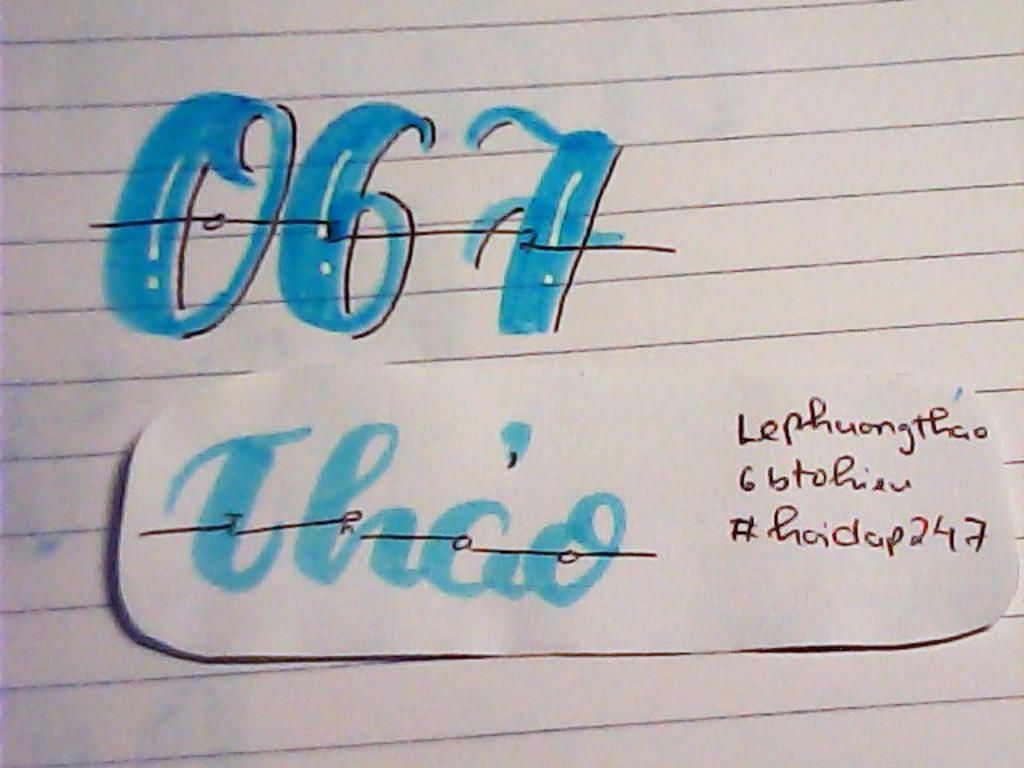 067
Thảo
Lephuongthảo
6btohieu
#hoidap247